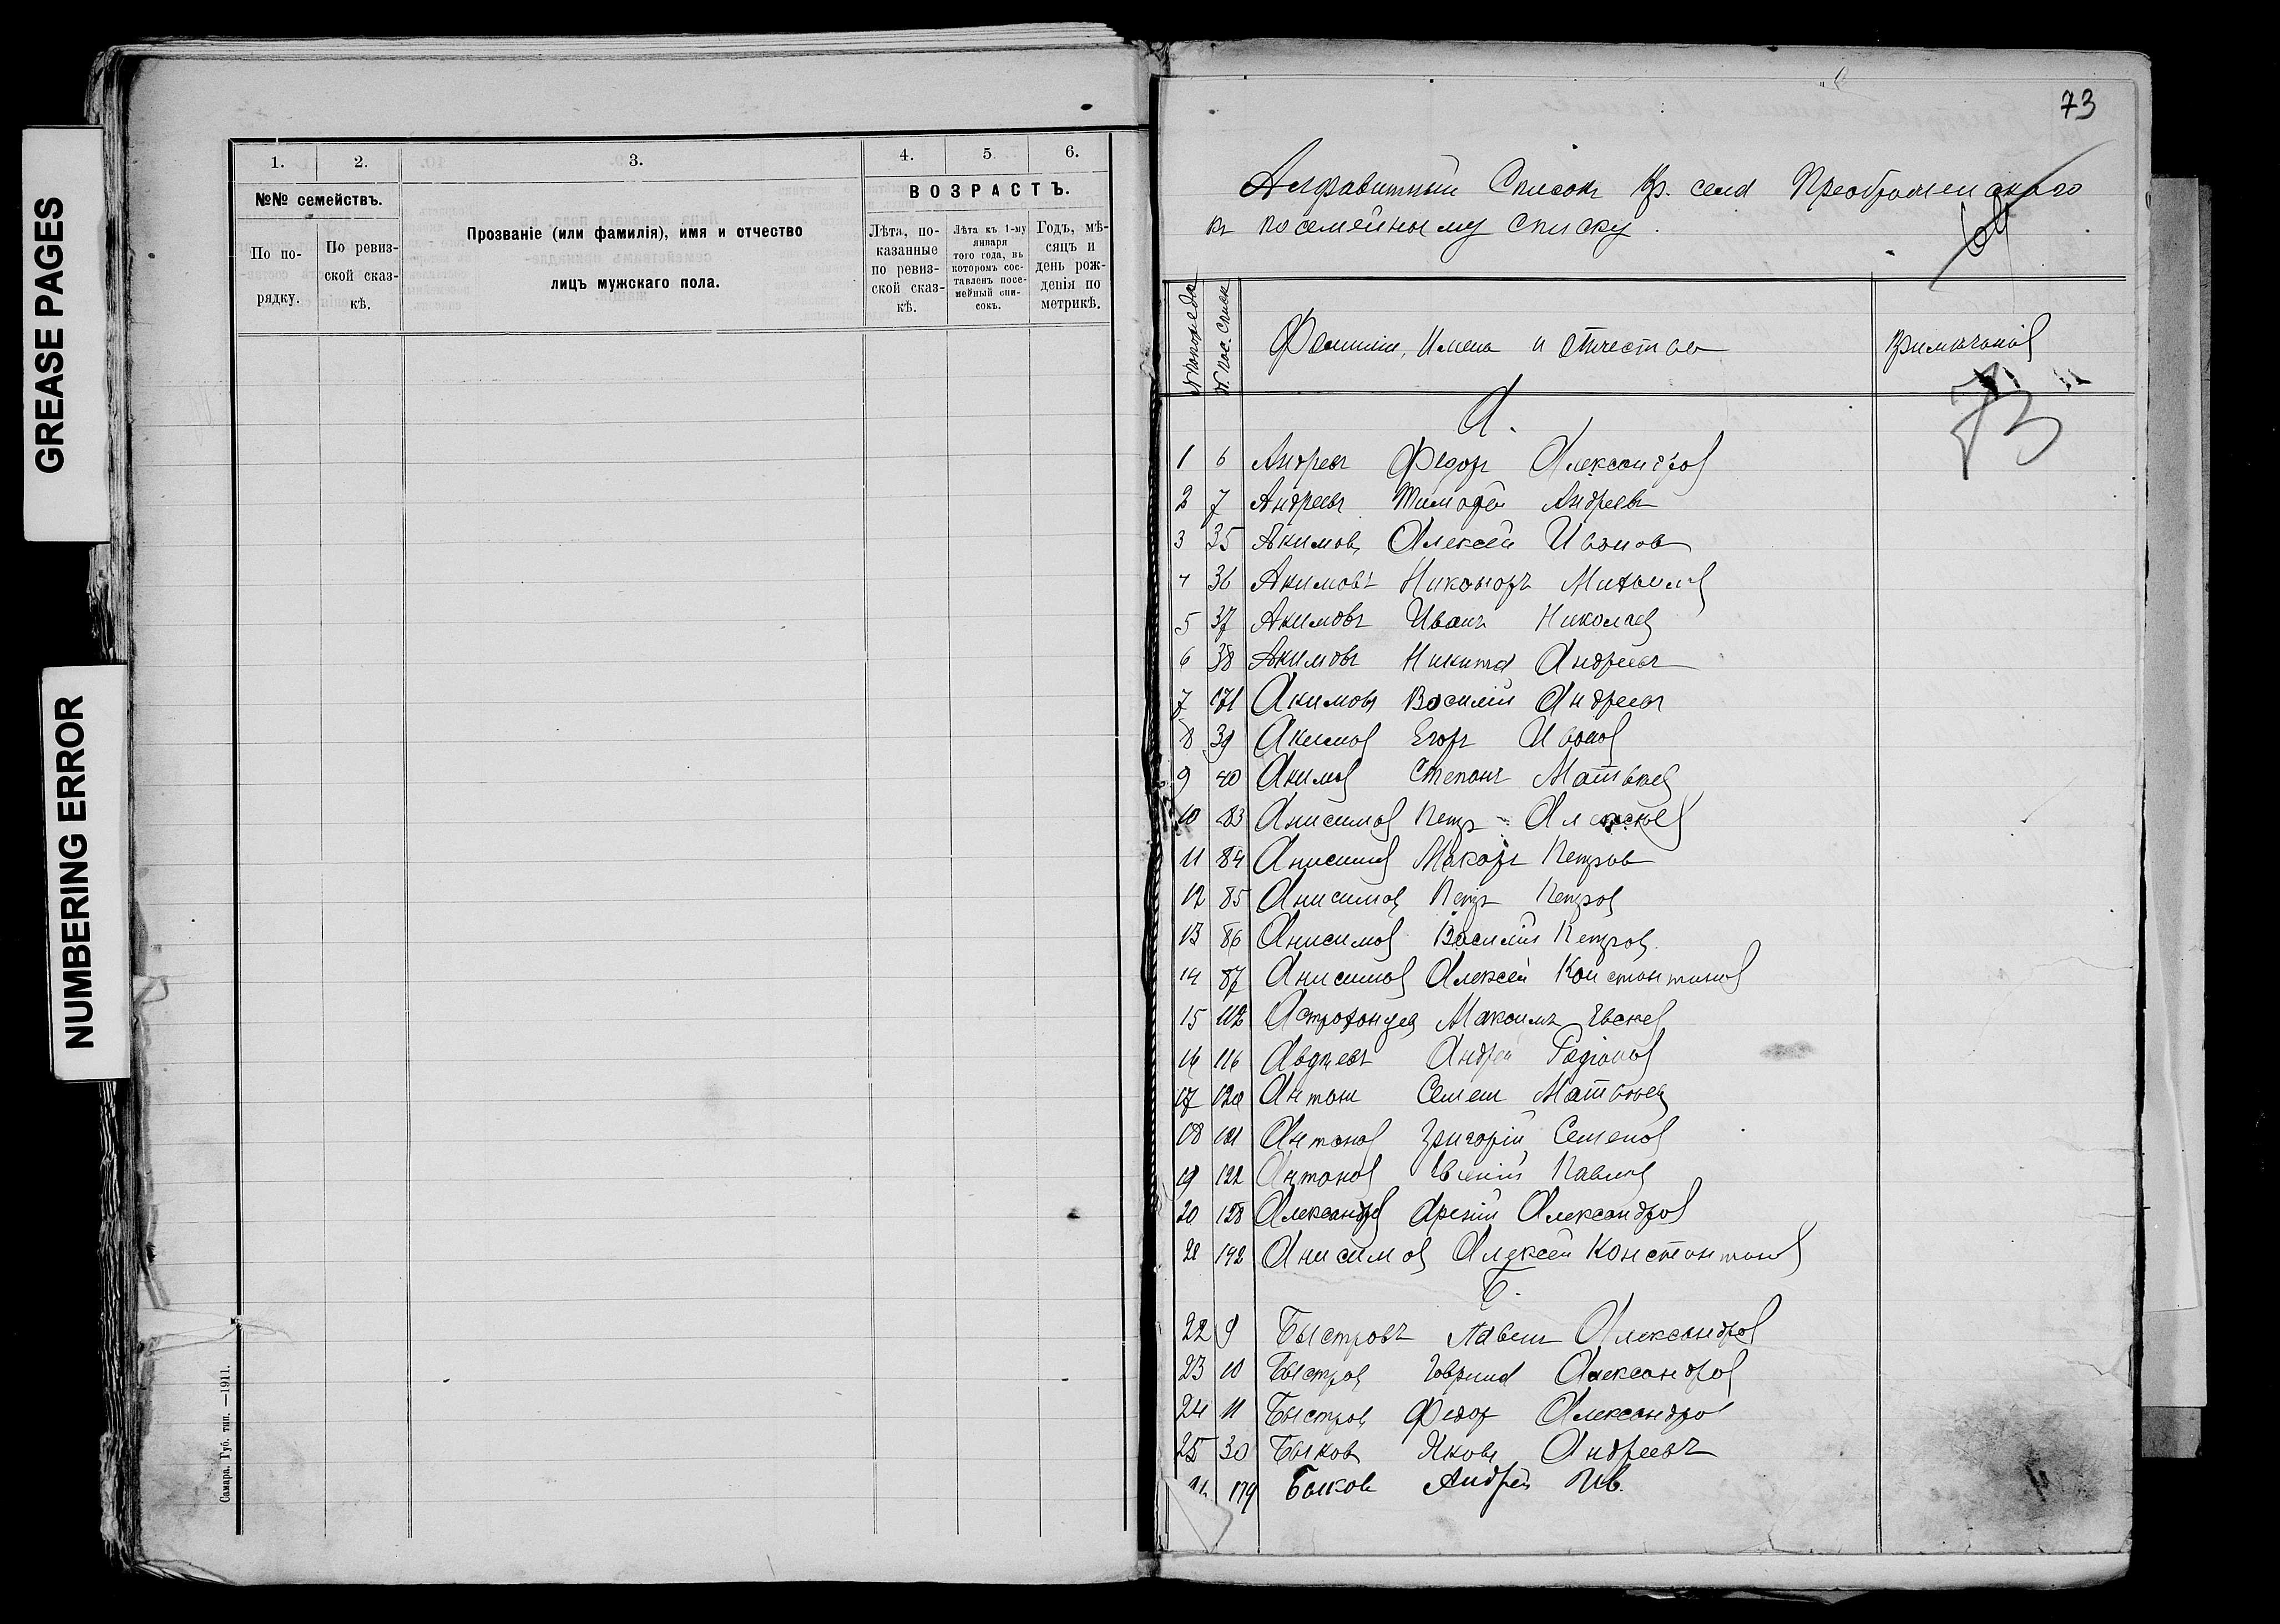 GREASE PAGES
NUMBERING ERROR
1. 2. 3. 4. 5. 6.
№№ семействъ.
По по-
рядку.
По ревиз-
ской сказ-
кѣ.
Прозваніе (или фамилія), имя и отчество
лицъ мужскаго пола.
ВОЗРАСТЪ.
Лѣта, по-
казанные
по ревиз-
ской сказ-
кѣ.
Лѣта къ 1-му
января
того года, въ
которомъ сос-
тавленъ посе-
мейный спи-
сокъ.
Годъ, мѣ-
сяцъ и
день рож-
денія по
метрикѣ.
Самара. Губ. тип. —1911.
73
Алфавитный Списокъ кр. села Преображенскаго
къ посемейному списку.
№ по порядку
№ пос. списк
Фамилии, Имена и Отчества
Примѣчаній
73
А.
1 6 Андреевъ Федоръ Александров
2 7 Андреевъ Тимофей Андреевъ
3 35 Акимовъ Алексей Иванов
4 36 Акимовъ Никоноръ Михаилов
5 37 Акимовъ Иванъ Николаев
6 38 Акимовъ Никита Андреевъ
7 171 Акимовъ Василій Андреевъ
8 39 Акимов Егоръ Иванов
9 40 Акимов Степанъ Матвѣев
10 83 Анисимов Петръ Алексѣев
11 84 Анисимов Макаръ Петров
12 85 Анисимов Петръ Петров
13 86 Анисимов Василій Петров
14 87 Анисимов Алексей Константинов
15 112 Астраханцев Максимъ Евсѣев
16 116 Авдѣевъ Андрей Радіонов
17 120 Антонов Семен Матвѣев
18 121 Антонов Григорій Семенов
19 122 Антонов Павлов
20 128 Александров Арсеній Александров
21 192 Анисимов Алексей Константинов
Б.
22 9 Быстровъ Павелъ Александров
23 10 Быстров Гаврила Александров
24 11 Быстров Федор Александров
25 30 Быков Яковъ Андреевъ
26 179 Быковъ Андрей Ив.